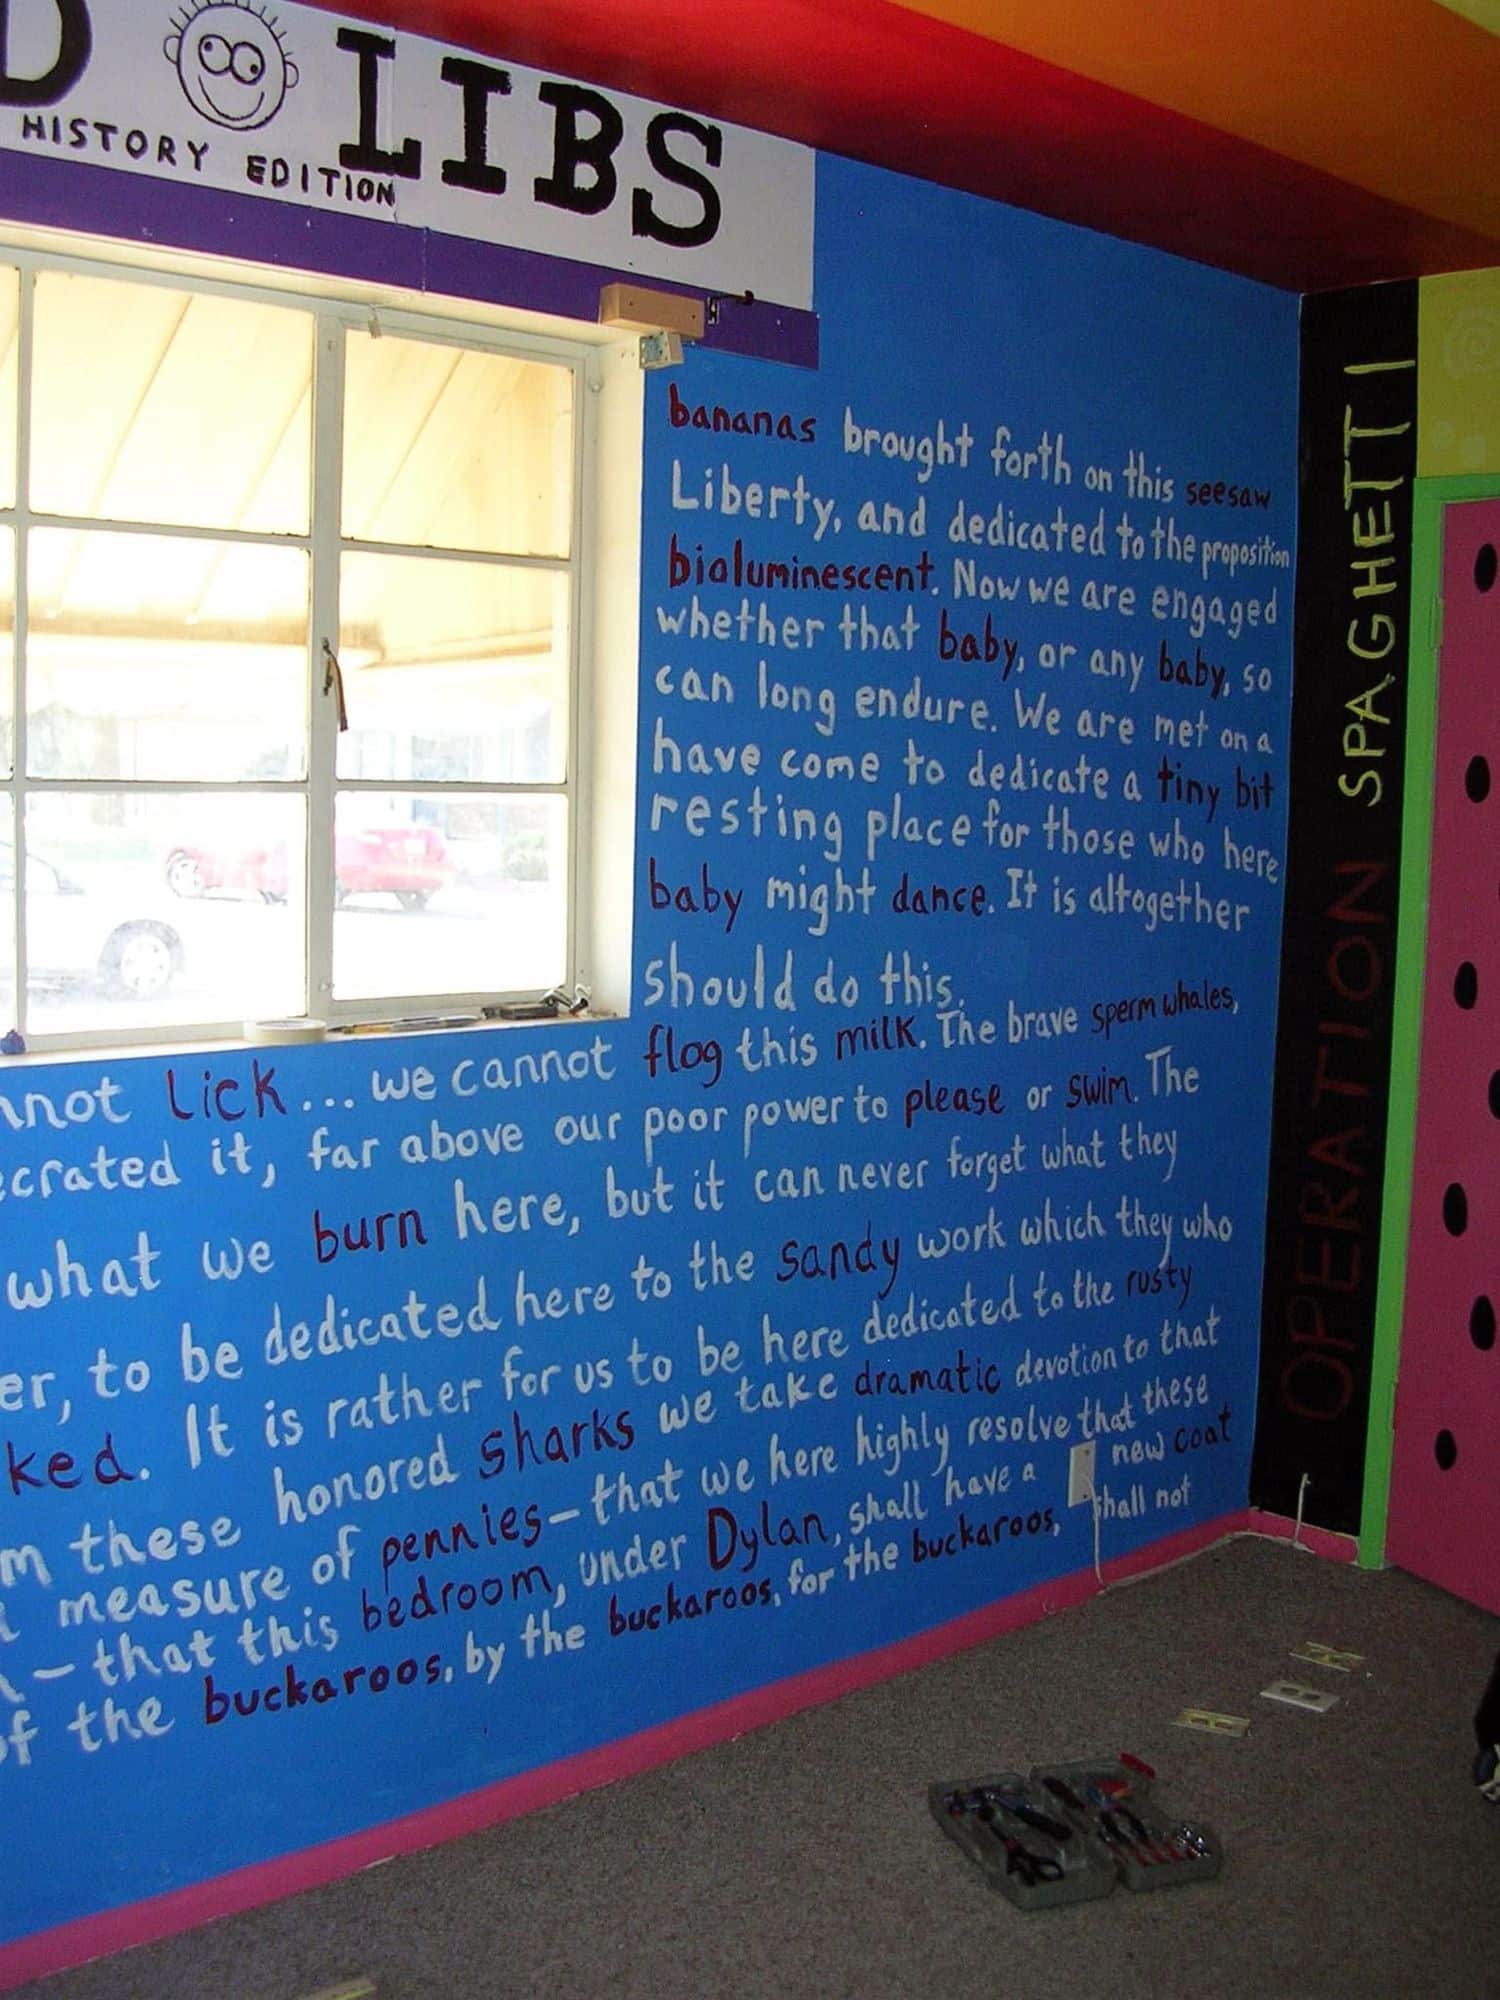 D LIBS
HISTORY EDITION
bananas brought forth on this seesaw
Liberty, and dedicated to the proposition
bioluminescent. Now we are engaged
whether that baby, or any baby, so
can long endure. We are met on a
have come to dedicate a tiny bit
resting place for those who here
baby might dance. It is altogether
should do this.
nnot Lick... we cannot flog this milk. The brave sperm whales,
ecrated it, far above our poor power to please or swim. The
what we burn here, but it can never forget what they
er, to be dedicated here to the sandy work which they who
ked. It is rather for us to be here dedicated to the rusty
m these honored sharks we take dramatic devotion to that
measure of pennies - that we here highly resolve that these
- that this bedroom, under Dylan, shall have a new coat
of the buckaroos, by the buckaroos, for the buckaroos, shall not
OPERATION SPAGHETTI